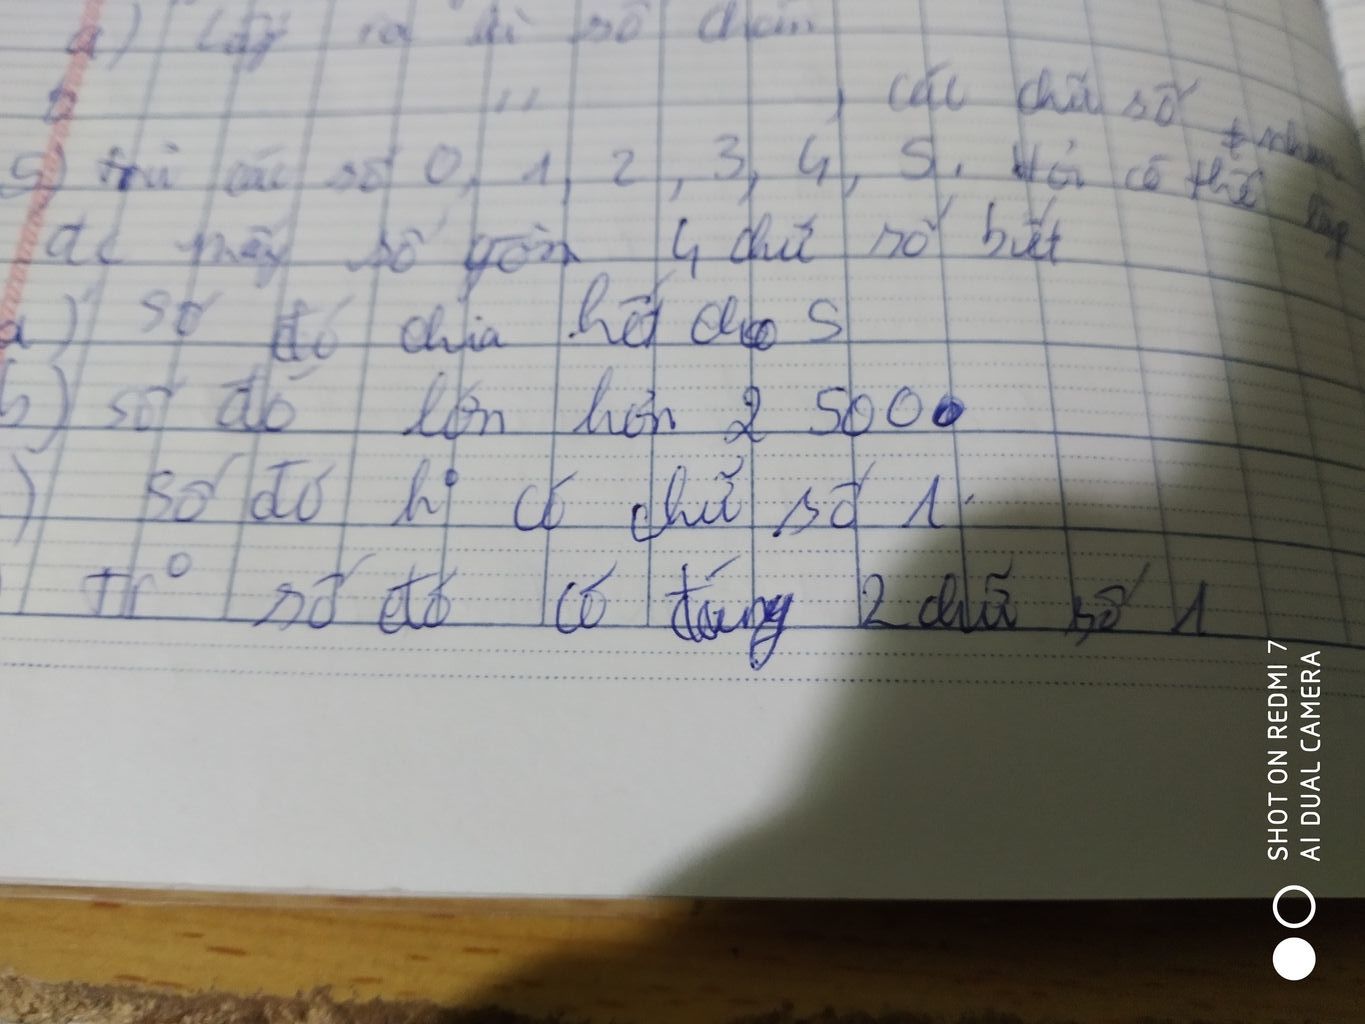 a) Lấy ra đc số chẵn
b " , các chữ số
5) từ các số 0, 1, 2, 3, 4, 5. Hỏi có thể lập
đc mấy số gồm 4 chữ số biết
a) số đó chia hết cho 5
b) số đó lớn hơn 2 500
) số đó ko có chữ số 1.
số đó có đúng 2 chữ số 1
SHOT ON REDMI 7
AI DUAL CAMERA